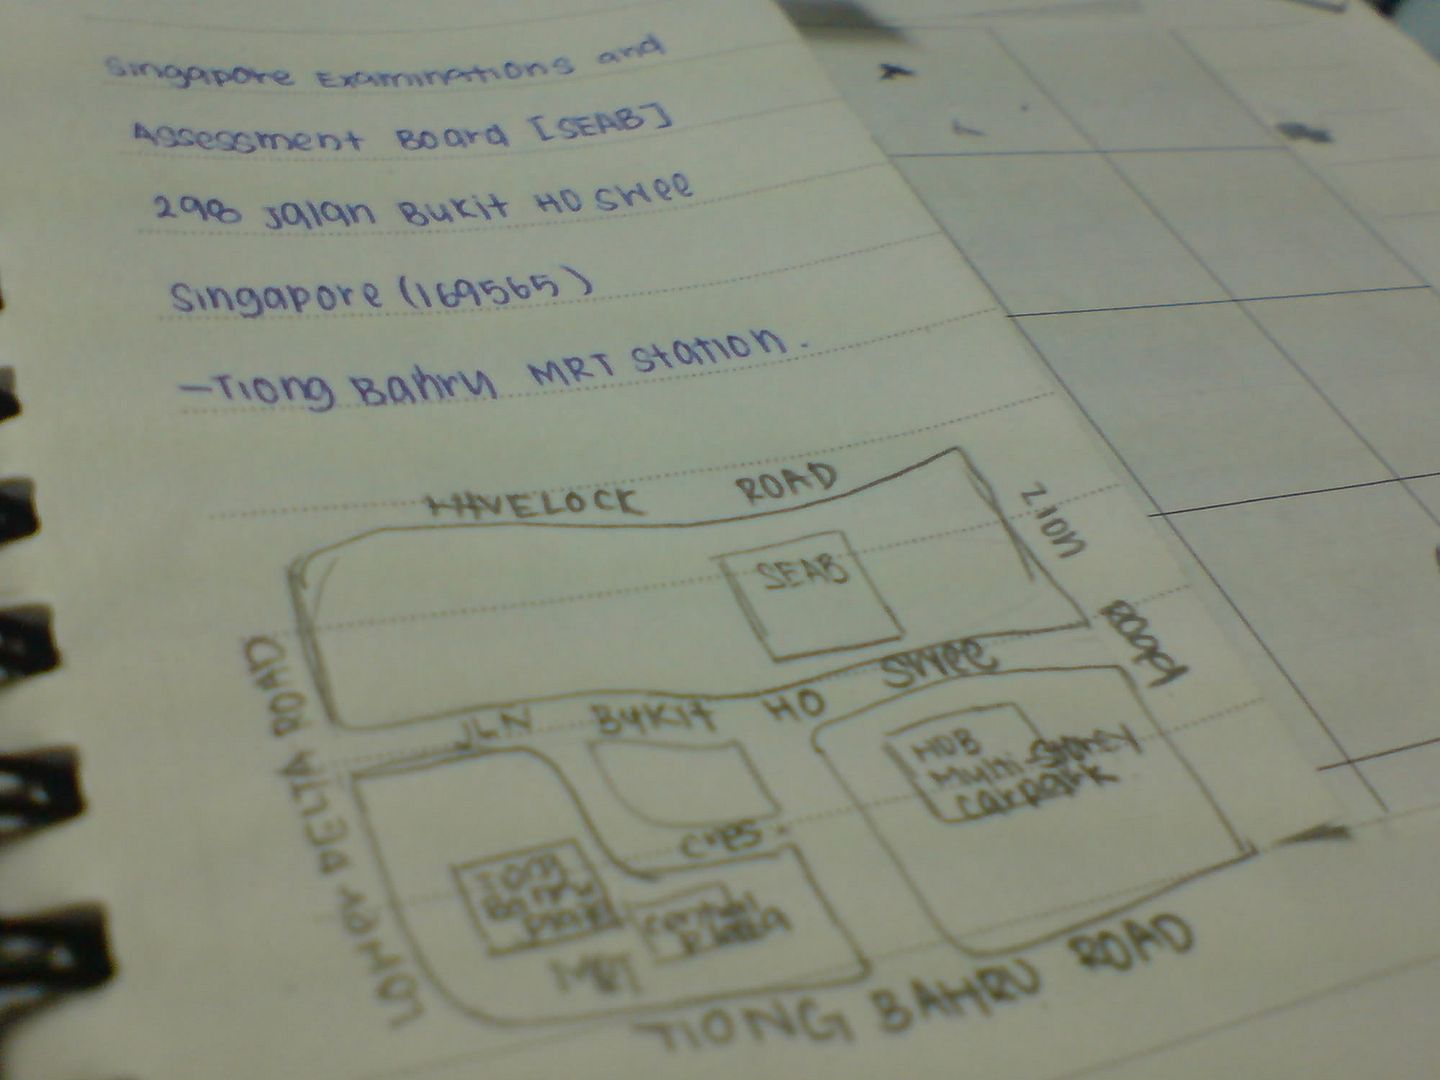 Singapore Examinations and
Assessment Board [SEAB]
298 Jalan Bukit Ho Swee
Singapore (169565)
-Tiong Bahru MRT Station.
HAVELOCK ROAD
ZION ROAD
SEAB
LOWER DELTA ROAD
JLN BUKIT HO SWEE
HDB
Multi-Storey
carpark
Tiong
Bahru
Plaza
Central
Plaza
MRT
TIONG BAHRU ROAD